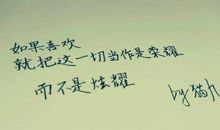 如果喜欢
就把这一切当作是荣耀
而不是炫耀
by猫九